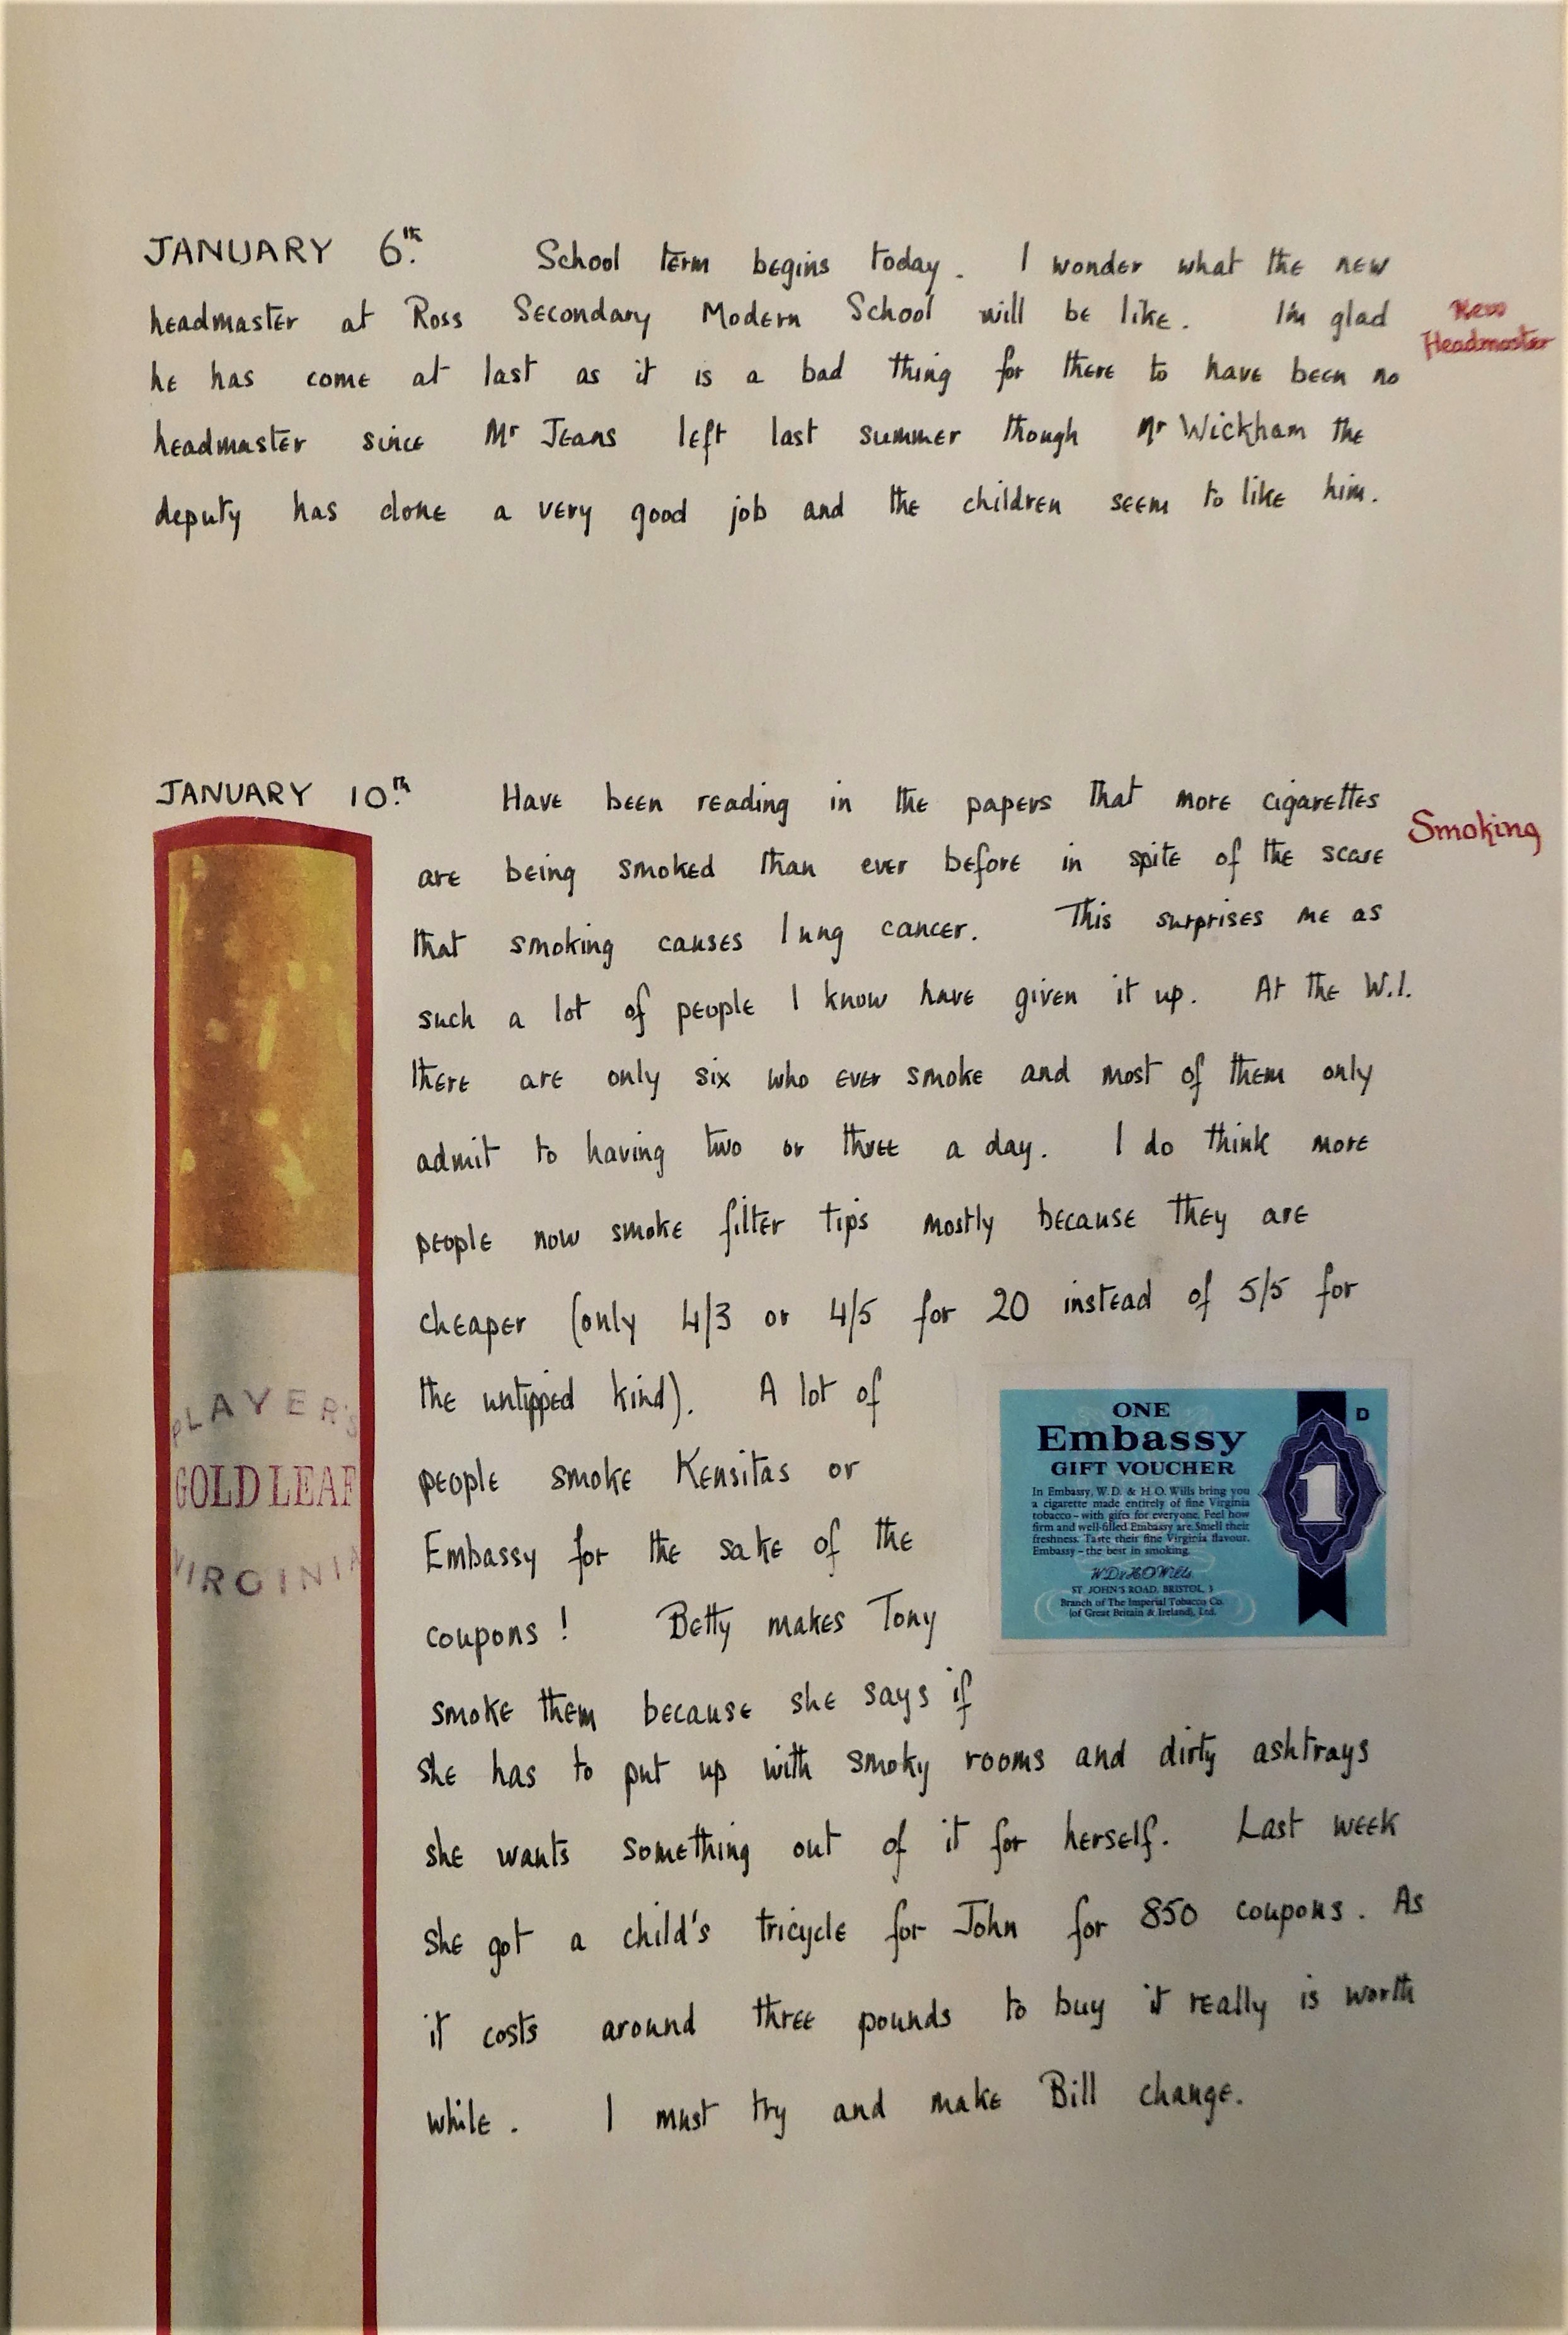 JANUARY 6th. School term begins today. I wonder what the new
headmaster at Ross Secondary Modern School will be like. I'm glad
New
Headmaster
he has come at last as it is a bad thing for there to have been no
headmaster since Mr Jeans left last summer though Mr Wickham the
deputy has done a very good job and the children seem to like him.
JANUARY 10th. Have been reading in the papers that more cigarettes
Smoking
are being smoked than ever before in spite of the scare
that smoking causes lung cancer. This surprises me as
such a lot of people I know have given it up. At the W.I.
there are only six who ever smoke and most of them only
admit to having two or three a day. I do think more
people now smoke filter tips mostly because they are
cheaper (only 4/3 or 4/5 for 20 instead of 5/5 for
the untipped kind). A lot of
people smoke Kensitas or
Embassy for the sake of the
coupons! Betty makes Tony
smoke them because she says if
she has to put up with smoky rooms and dirty ashtrays
she wants something out of it for herself. Last week
she got a child's tricycle for John for 850 coupons. As
it costs around three pounds to buy it really is worth
while. I must try and make Bill change.
PLAYER'S
GOLD LEAF
VIRGINIA
ONE
Embassy
GIFT VOUCHER
In Embassy, W.D. & H.O. Wills bring you
a cigarette made entirely of fine Virginia
tobacco - with gifts for everyone. Feel how
firm and well-filled Embassy are. Smell their
freshness. Taste their fine Virginia flavour.
Embassy - the best in smoking.
W.D. & H.O. Wills
ST. JOHN'S ROAD, BRISTOL, 3
Branch of The Imperial Tobacco Co.
(of Great Britain & Ireland), Ltd.
D
1